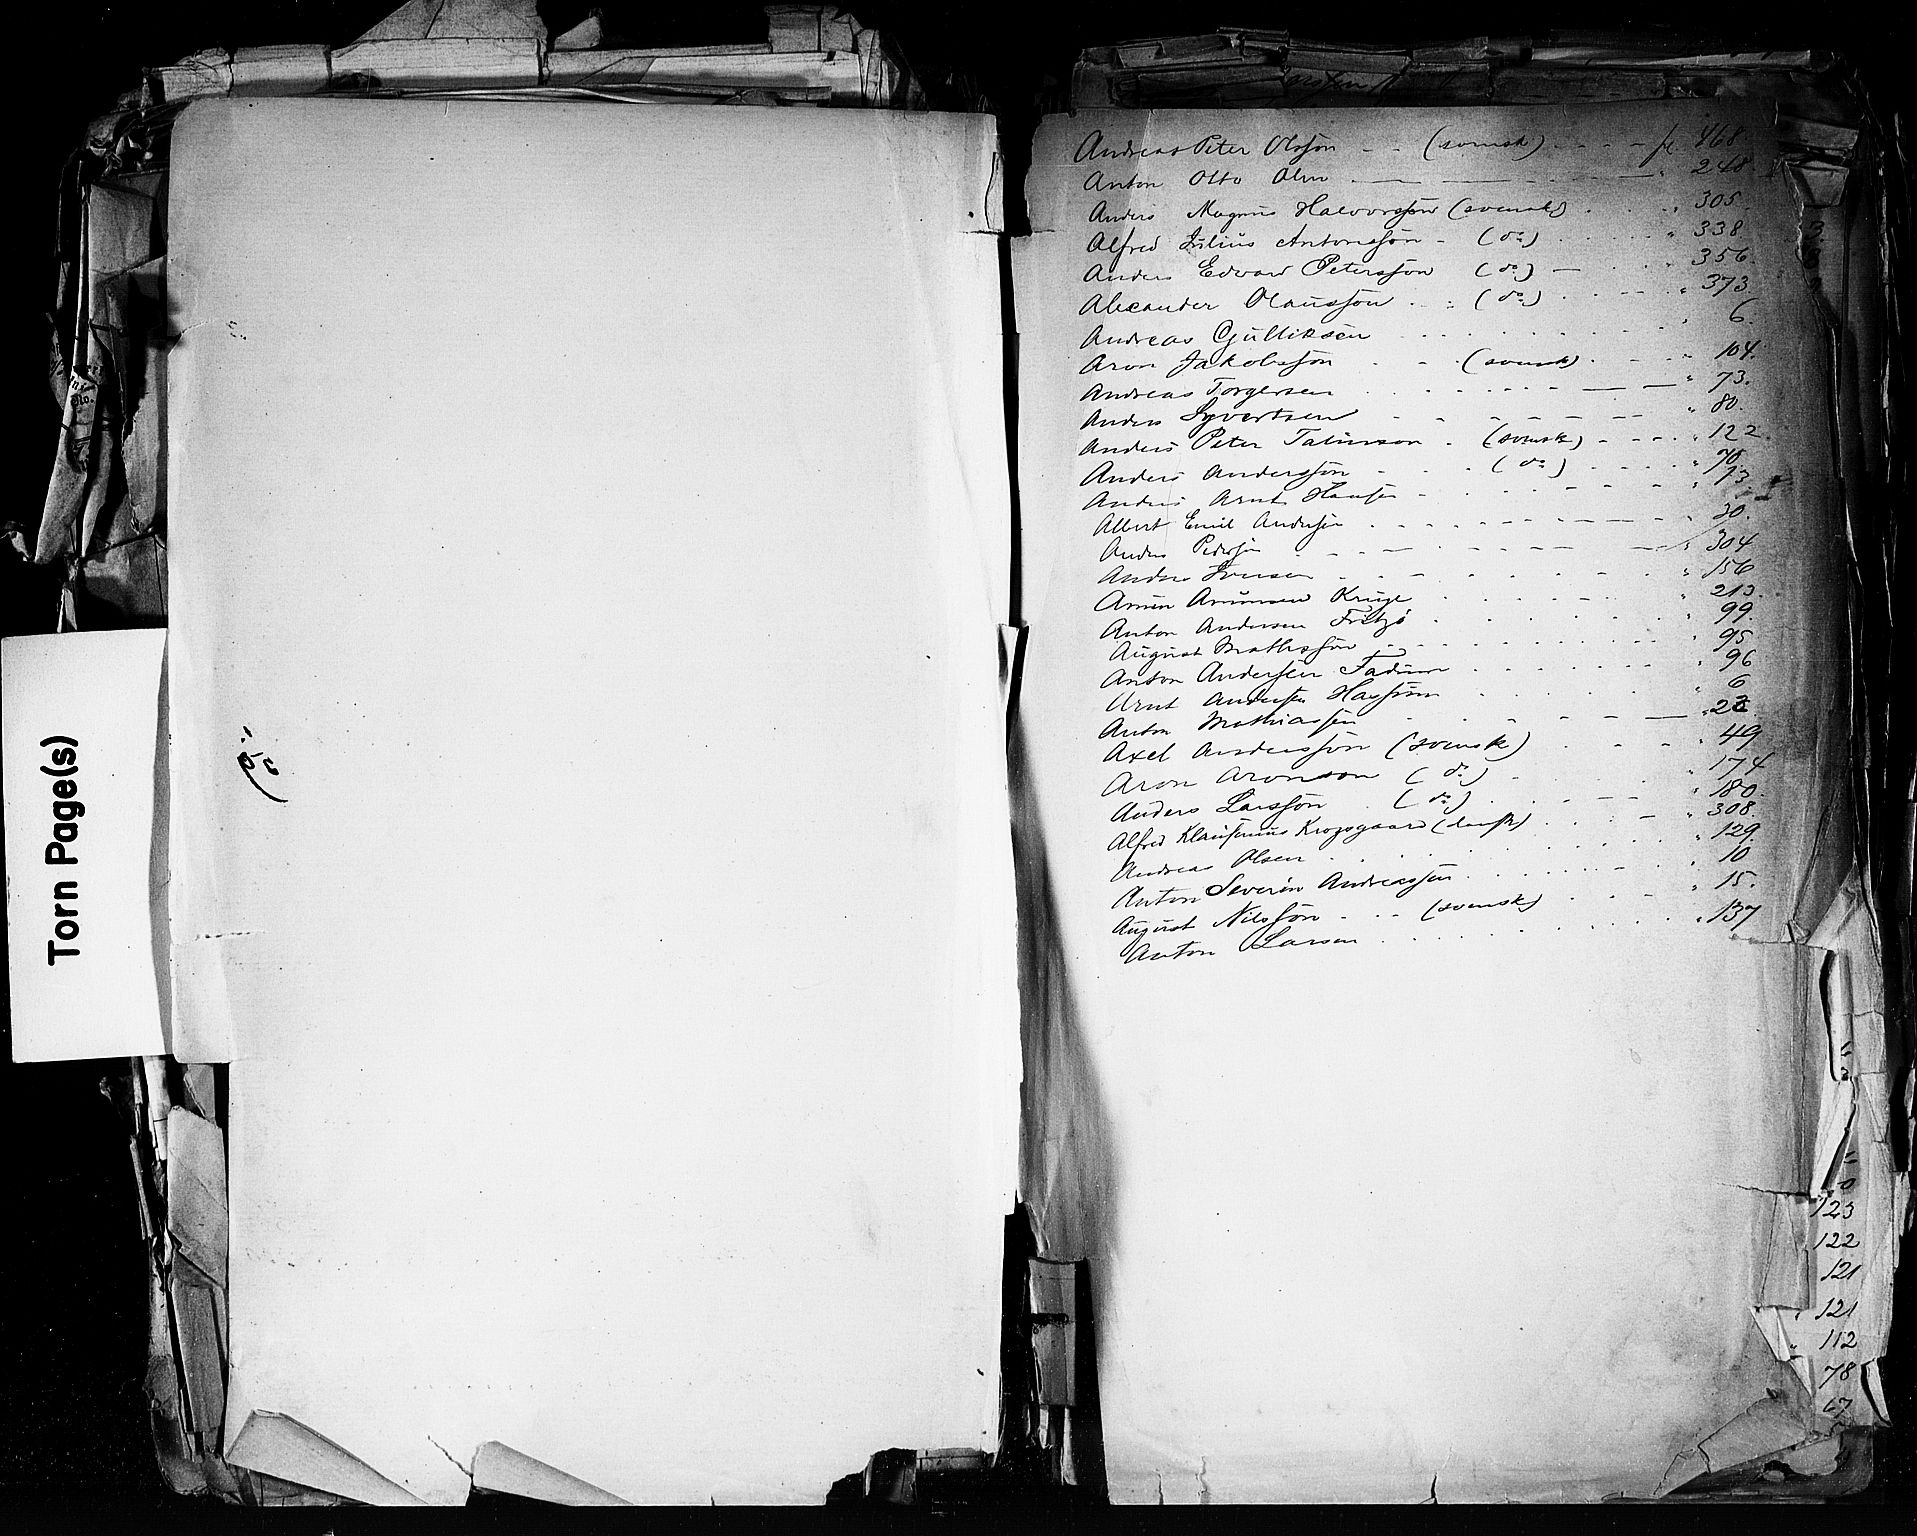 Torn Page(s)
Andreas Peter Olsson - - (svensk) - - - - fol. 468
Anton Otto Olm " 248.
Anders Magnus Halvorsson (svensk) " 305
Alfred Julius Antonsson - (do) " 338
Anders Edvard Petersson (do) " 356.
Alexander Olausson (do) " 373.
Andreas Gulliksen " 6.
Aron Jakobsson - - (svensk) " 104.
Andreas Torgersen " 73.
Anders Syvertsen " 80.
Anders Peter (svensk) " 122.
Anders Andersson (do) " 70.
Anders Arnt Hansen " 13
Albert Emil Andersen " 30.
Anders Pedersen " 304
Anders Iversen " 156
Amundsen " 213.
Anton Andersen " 99.
August Mathisson " 95
Anton Andersen " 96
Arnt Andersen " 6
Anton Mathiassen
Axel Andersson (svensk) " 49
Aron Aronson (do) " 174
Anders Larsson (do) " 180.
Alfred Krogsgaard (dansk) " 308.
Andreas Olsen " 129.
Anton Severin Andreassen " 10
August Nilsson - - - (svensk) " 15.
Anton Larsen " 137
123
122
121
" 121
" 112
78
67